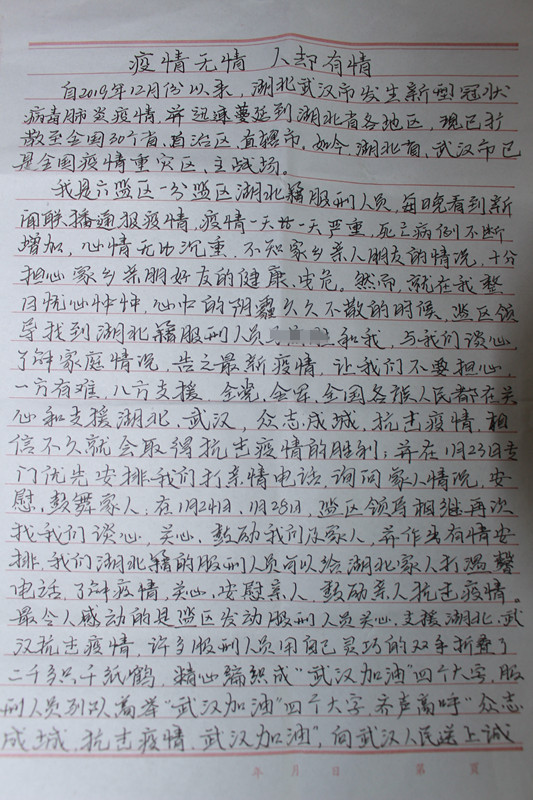 疫情无情 人却有情
自2019年12月份以来,湖北武汉市发生新型冠状
病毒肺炎疫情,并迅速蔓延到湖北省各地区,现已扩
散至全国30个省、自治区、直辖市。如今,湖北省、武汉市已
是全国疫情重灾区、主战场。
我是六监区一分监区湖北籍服刑人员,每晚看到新
闻联播通报疫情,疫情一天比一天严重,死亡病例不断
增加,心情无比沉重,不知家乡亲人朋友的情况,十分
担心家乡亲朋好友的健康、安危。然而,就在我整
日忧心忡忡,心中的阴霾久久不散的时候,监区领
导找到湖北籍服刑人员 和我,与我们谈心,
了解家庭情况,告之最新疫情,让我们不要担心,
一方有难,八方支援,全党、全军、全国各族人民都在关
心和支援湖北、武汉,众志成城,抗击疫情,相
信不久就会取得抗击疫情的胜利;并在1月23日专
门优先安排我们打亲情电话,询问家人情况,安
慰、鼓舞家人;在1月24日、1月28日,监区领导相继再次
找我们谈心,关心、鼓励我们及家人,并作出有情安
排,我们湖北籍的服刑人员可以给湖北家人打温馨
电话,了解疫情,关心、安慰亲人,鼓励亲人抗击疫情。
最令人感动的是监区发动服刑人员关心、支援湖北、武
汉抗击疫情,许多服刑人员用自己灵巧的双手折叠了
二千多只千纸鹤,精心编织成“武汉加油”四个大字,服
刑人员列队高举“武汉加油”四个大字,齐声高呼“众志
成城,抗击疫情,武汉加油”,向武汉人民送上诚
年 月 日 第 页